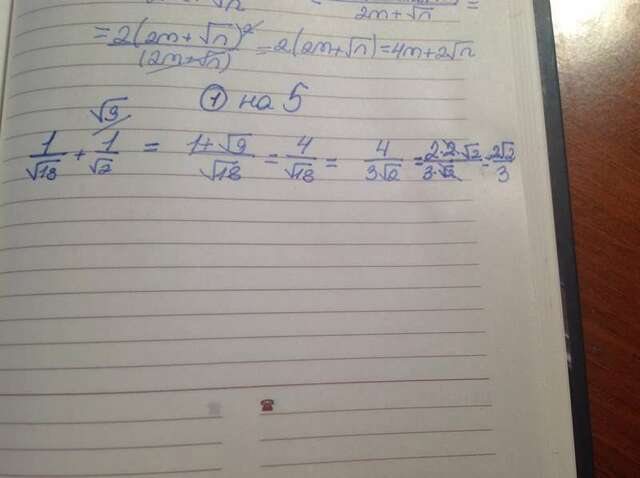 2m + √n =
= 2(2m + √n)² / (2m + √n) = 2(2m + √n) = 4m + 2√n
① на 5
√9
1/√18 + 1/√2 = 1 + √9 / √18 = 4/√18 = 4/3√2 = 2·2·√2 / 3·√2 = 2√2 / 3